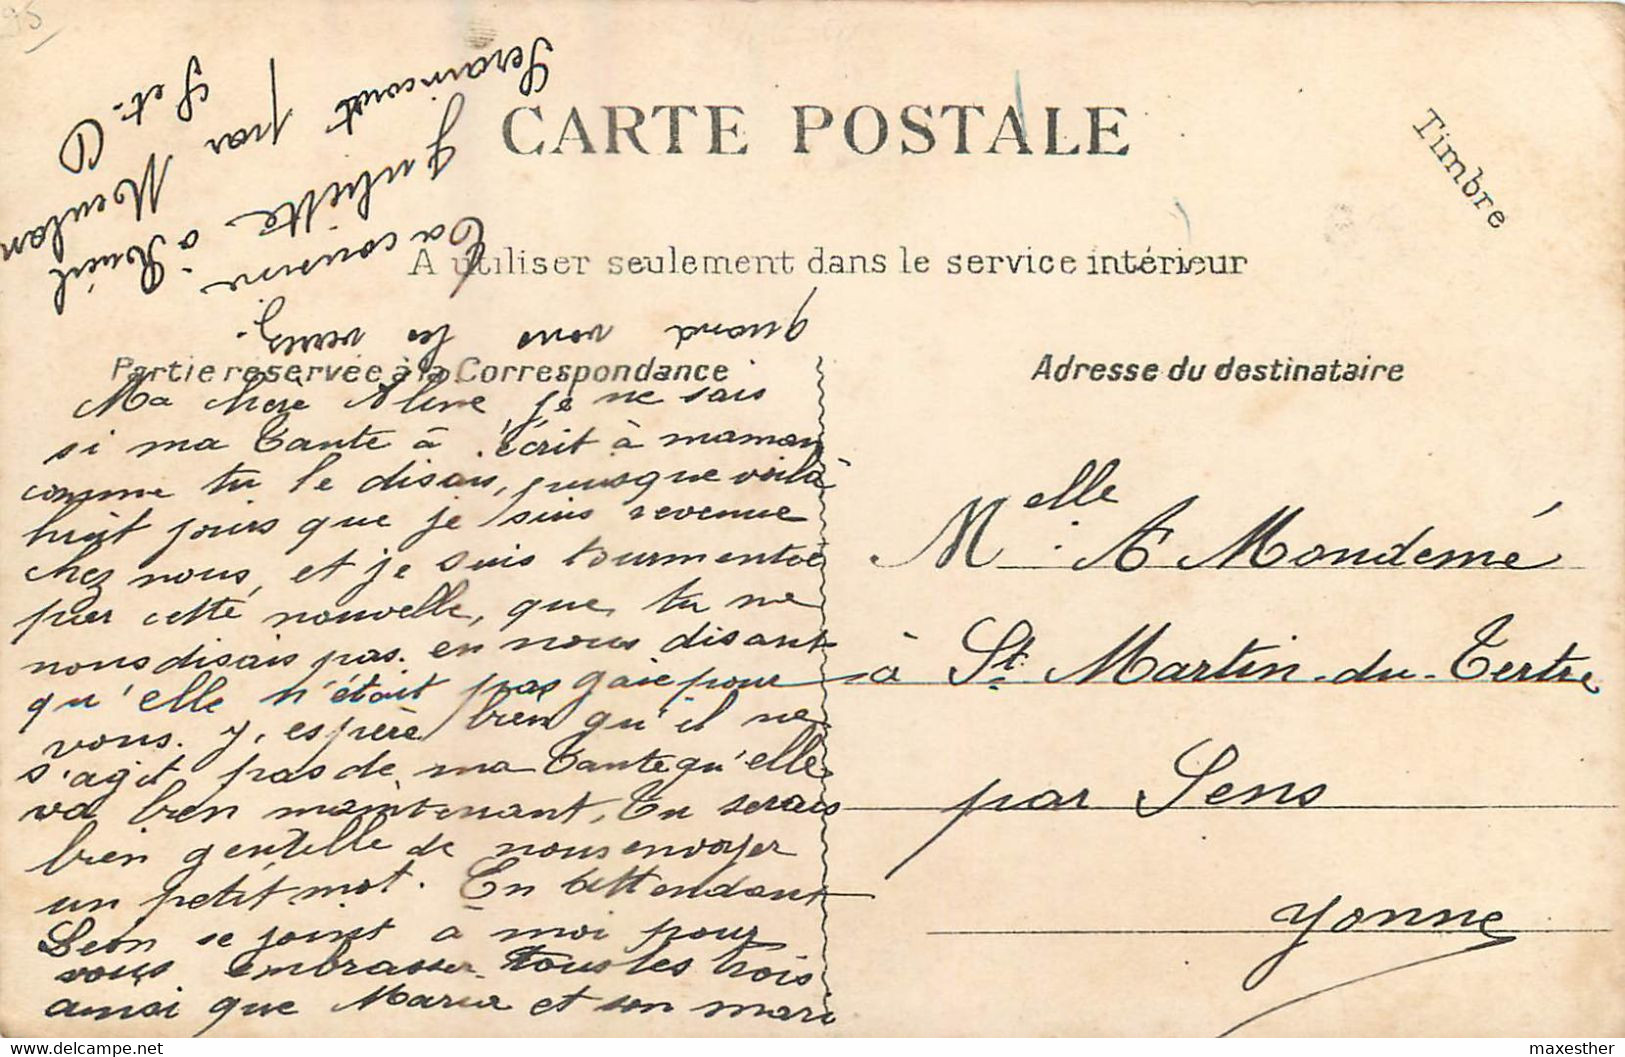 95
CARTE POSTALE
Timbre
A utiliser seulement dans le service intérieur
Partie réservée à la Correspondance
Adresse du destinataire
Ma chère Aline, je ne sais
si ma tante à écrit à maman
comme tu le disais, puisque voilà
huit jours que je suis revenue
chez nous, et je suis tourmentée
par cette nouvelle, que tu ne
nous disais pas. en nous disant
qu'elle n'était pas gaie pour
vous. J'espère bien qu'il ne
s'agit pas de ma tante qu'elle
va bien maintenant, Tu serais
bien gentille de nous envoyer
un petit mot. En attendant
Léon se joint à moi pour
vous embrasser tous les trois
ainsi que Maria et son mari
quand vous les verrez.
Ta cousine
Juliette à Rueil
Seraincourt par Meulan
S et. O
Melle A Mondemé
à St Martin-du-Tertre
par Sens
Yonne
maxesther